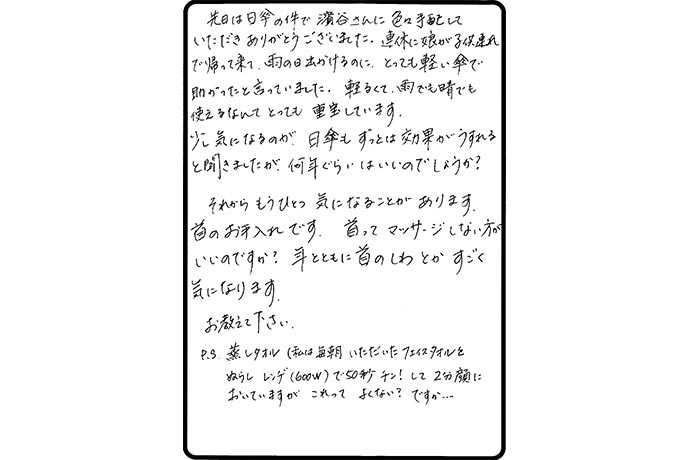 先日は日傘の件で濱谷さんに色々手配して
いただきありがとうございました。連休に娘が子供連れ
で帰って来て、雨の日出かけるのに、とっても軽い傘で
助かったと言っていました。軽るくて、雨でも晴でも
使えるなんてとっても重宝しています。
少し気になるのが、日傘もずっとは効果がうすれる
と聞きましたが、何年ぐらいはいいのでしょうか?
それからもうひとつ気になることがあります。
首のお手入れです。首ってマッサージしない方が
いいのですか? 耳とともに首のしわとかすごく
気になります。
お教えて下さい。
P.S. 蒸しタオル (私は毎朝いただいたフェイスタオルを
ぬらしレンヂ(600W)で50秒チン!して2分顔に
おいていますがこれってよくない?ですか…